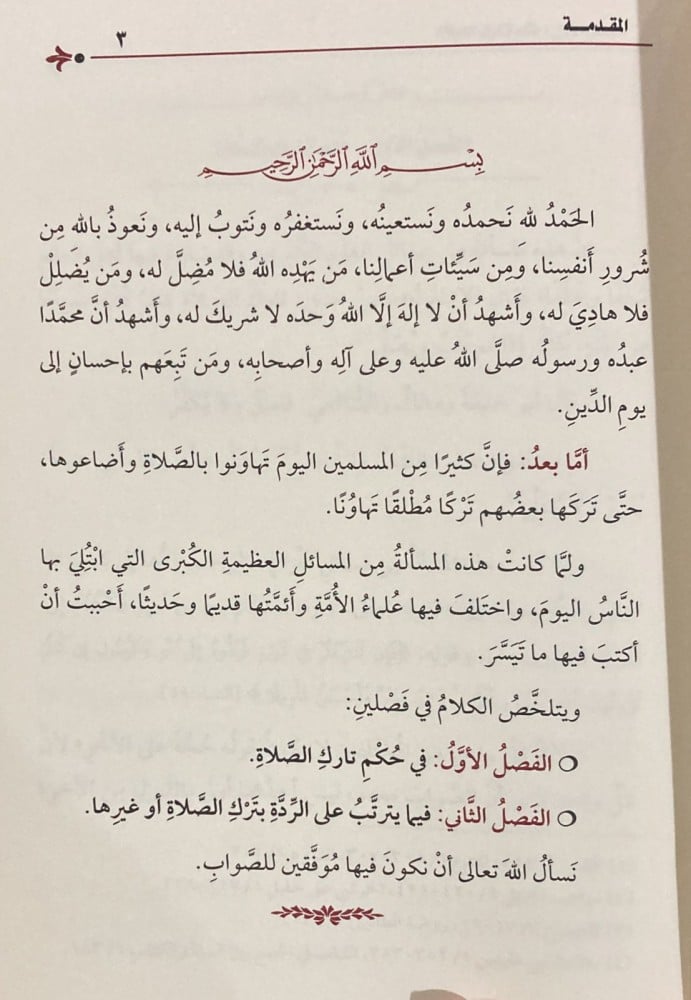 المقدمـــة
٣
بِسْــمِ ٱللَّهِ ٱلرَّحْمَٰنِ ٱلرَّحِيمِ
الحَمْدُ لله نَحمدُه ونَستعينُه، ونَستغفرُه ونَتوبُ إليه، ونَعوذُ بالله مِن
شُرورِ أَنفسِنا، وَمِن سَيِّئاتِ أعمالِنا، مَن يَهْدِه اللهُ فلا مُضِلَّ له، ومَن يُضلِلْ
فلا هادِيَ له، وأَشهدُ أنْ لا إلهَ إلَّا اللهُ وَحدَه لا شريكَ له، وأَشهدُ أنَّ محمَّدًا
عبدُه ورسولُه صلَّى اللهُ عليه وعلى آلِه وأصحابِه، ومَن تَبِعَهم بإحسانٍ إلى
يومِ الدِّينِ.
أمَّا بعدُ: فإنَّ كثيرًا مِن المسلمين اليومَ تَهاوَنوا بالصَّلاةِ وأَضاعوها،
حتَّى تَرَكَها بعضُهم تَرْكًا مُطْلقًا تَهاوُنًا.
ولمَّا كانتْ هذه المسألةُ مِن المسائلِ العظيمةِ الكُبْرى التي ابْتُلِيَ بها
النَّاسُ اليومَ، واختَلفَ فيها عُلماءُ الأُمَّةِ وأَئمَّتُها قديمًا وحَديثًا، أَحْببتُ أنْ
أكتبَ فيها ما تَيَسَّرَ.
ويتلخَّصُ الكلامُ في فَصْلينِ:
○ الفَصْلُ الأوَّلُ: في حُكْمِ تاركِ الصَّلاةِ.
○ الفَصْلُ الثَّاني: فيما يترتَّبُ على الرِّدَّةِ بتَرْكِ الصَّلاةِ أو غيرِها.
نَسألُ اللهَ تعالى أنْ نكونَ فيها مُوَفَّقين للصَّوابِ.